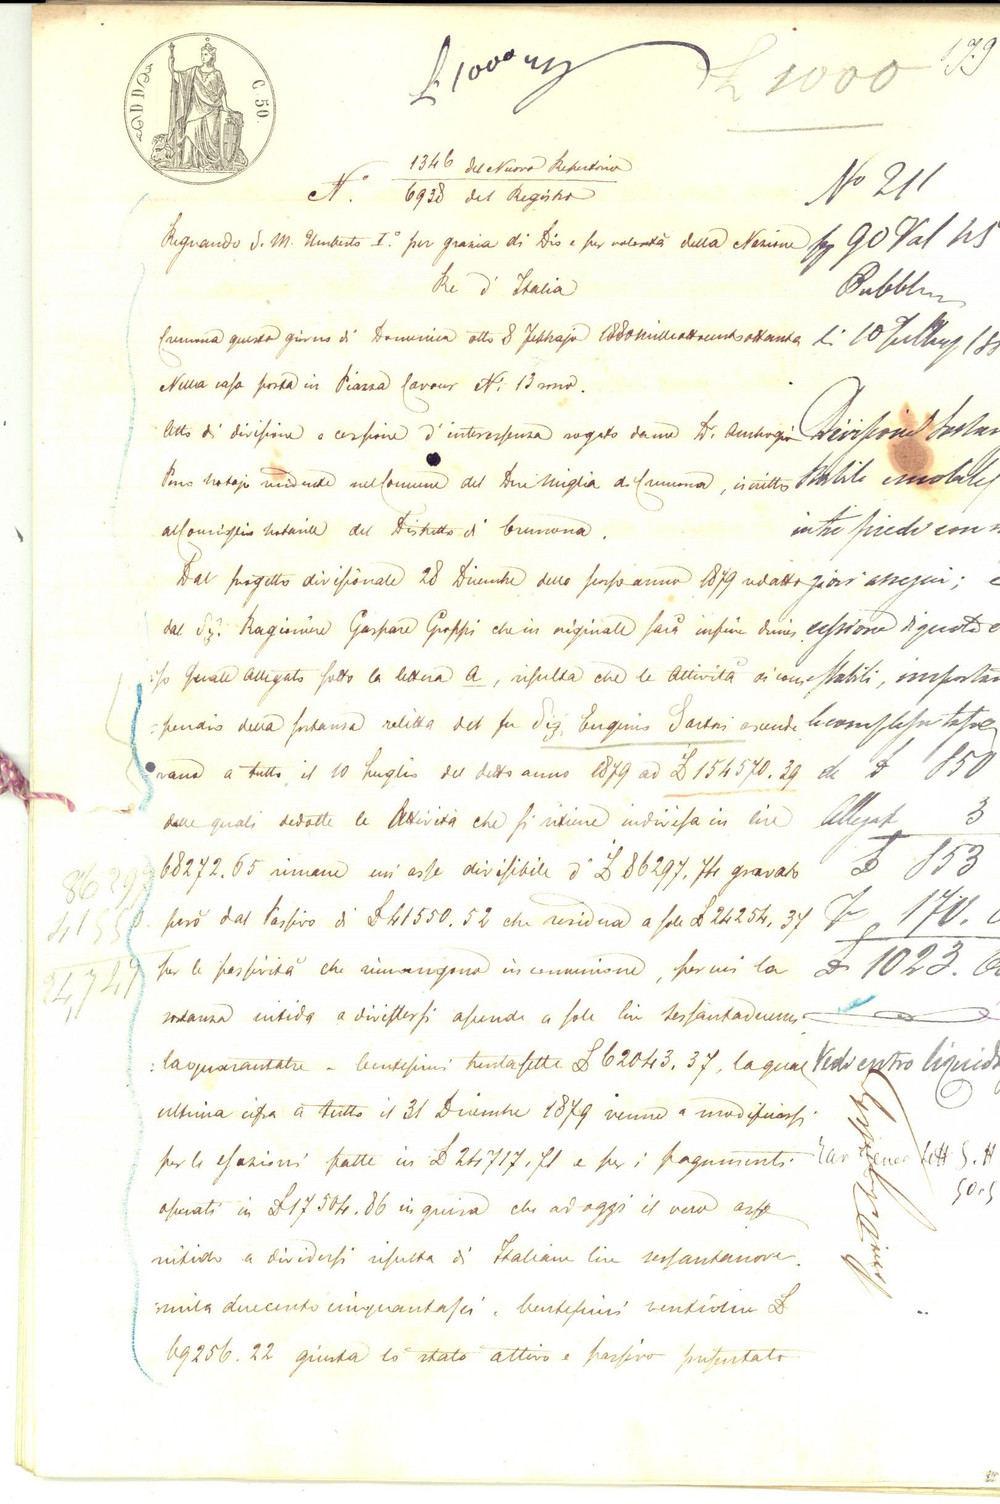 C. 50.
£ 1000
£ 1000
179
N.° 1346 del Nuovo Repertorio
6938 del Registro
Regnando S. M. Umberto I.° per grazia di Dio e per volontà della Nazione
Re d'Italia
Cremona questo giorno di Domenica otto 8 Febbrajo 1880 milleottocentottanta
Nella casa posta in Piazza Cavour N.° 13
Atto di divisione e cessione d'interessenza rogato da me D.r Ambrogio
Notajo residente nel Comune del Due Miglia di Cremona, iscritto
al Consiglio Notarile del Distretto di Cremona.
Dal progetto divisionale 28 Dicembre dello scorso anno 1879 redatto
dal Sig.r Ragioniere Gaspare Groppi che in originale sarà infine dimes
:so quale Allegato sotto la lettera A, risulta che le Attività
:pendio della sostanza relitta del fu Sig. Eugenio Sartori ascende
:vano a tutto il 10 Luglio del detto anno 1879 ad £ 154570.39
dalle quali dedotte le Attività che si ritiene indivisa in lire
68272.65 rimane un asse divisibile d' £ 86297.74 gravato
però dal Passivo di £ 41550.52 che residua a sole £ 24254.37
per le passività che rimangono in comunione, per cui la
sostanza nitida a dividersi ascende a sole lire sessantaduemi
:laquarantatre e centesimi trentasette £ 62043.37, la quale
ultima cifra a tutto il 31 Dicembre 1879 venne a modificarsi
per le esazioni fatte in £ 24717.71 e per i pagamenti
operati in £ 17504.86 in guisa che ad oggi il vero asse
nitido a dividersi risulta di Italiane lire sessantanove
:mila duecento cinquantasei e centesimi ventidue £
69256.22 giusta lo stato attivo e passivo presentato
N° 211
90 Vol 45
Pubbl
li 10
Divisione
stabile e mobile
in tre piedi con
giori assegni; e
cessione di quote
stabili, importan
le complessive tasse
de £ 850
Allegat 3
£ 853
170.
£ 1023.
Vedi entro liquid
8629
4155
24,747